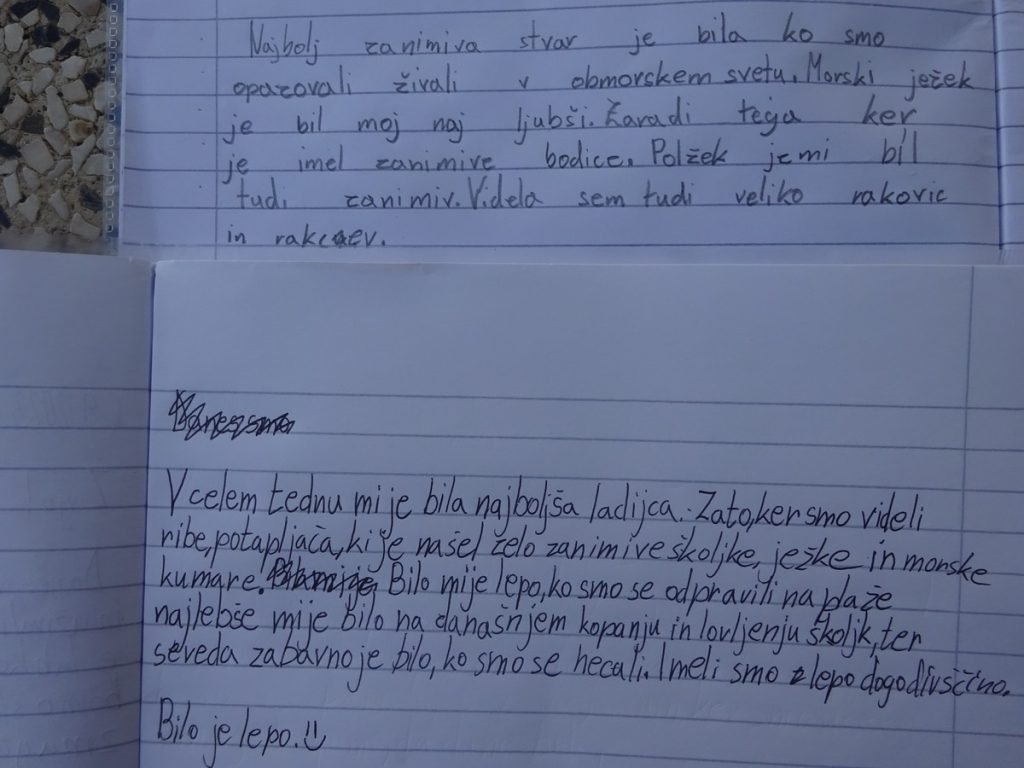 Najbolj zanimiva stvar je bila ko smo
opazovali živali v obmorskem svetu. Morski ježek
je bil moj naj ljubši. Zaradi tega ker
je imel zanimive bodice. Polžek je mi bil
tudi zanimiv. Videla sem tudi veliko rakovic
in rakcev.
V celem tednu mi je bila najboljša ladijca. Zato, ker smo videli
ribe, potapljača, ki je našel želo zanimive školjke, ježke in morske
kumare. Bilo mije lepo, ko smo se odpravili na plaže
najlebše mije bilo na današnjem kopanju in lovljenju školjk, ter
seveda zabavno je bilo, ko smo se hecali. Imeli smo lepo dogodivščino.
Bilo je lepo.